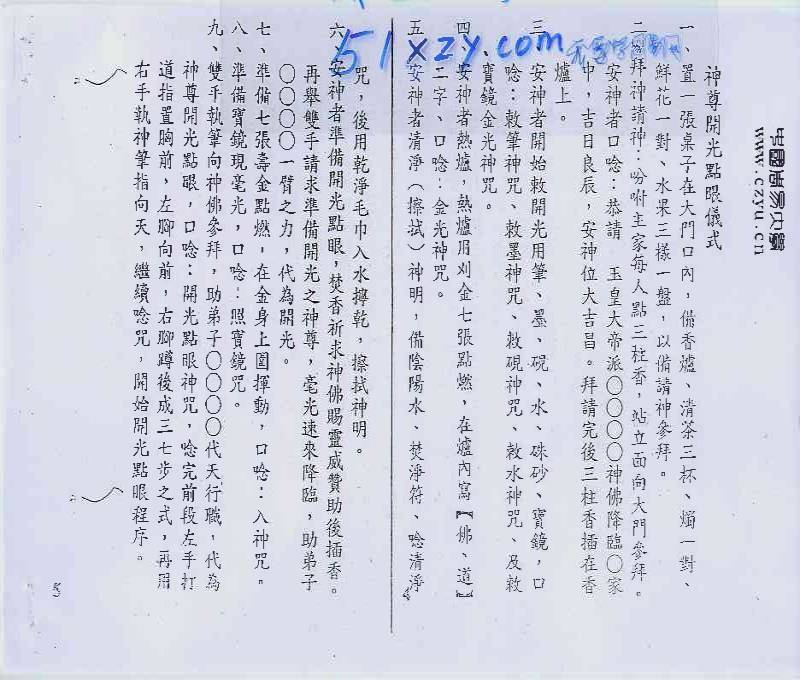 51xzy.com
中國易家文墨
www.czyu.cn
神尊開光點眼儀式
一、置一張桌子在大門口內，備香爐、清茶三杯、燭一對、
鮮花一對、水果三樣一盤，以備請神參拜。
二、拜神請神：吩咐主家每人點三柱香，站立面向大門參拜。
安神者口唸：恭請 玉皇大帝派○○○○神佛降臨○家
中，吉日良辰，安神位大吉昌。拜請完後三柱香插在香
爐上。
三、安神者開始敕開光用筆、墨、硯、水、硃砂、寶鏡，口
唸：敕筆神咒、敕墨神咒、敕硯神咒、敕水神咒、及敕
寶鏡金光神咒。
四、安神者熱爐，熱爐用刈金七張點燃，在爐內寫【佛、道】
二字、口唸：金光神咒。
五、安神者清淨（擦拭）神明，備陰陽水、焚淨符、唸清淨
4
咒，後用乾淨毛巾入水擰乾，擦拭神明。
六、安神者準備開光點眼，焚香祈求神佛賜靈威贊助後插香。
再舉雙手請求準備開光之神尊，毫光速來降臨，助弟子
○○○○一臂之力，代為開光。
七、準備七張壽金點燃，在金身上圍揮動，口唸：入神咒。
八、準備寶鏡現毫光，口唸：照寶鏡咒。
九、雙手執筆向神佛參拜，助弟子○○○○代天行職，代為
神尊開光點眼，口唸：開光點眼神咒，唸完前段左手打
道指置胸前，左腳向前，右腳蹲後成三七步之式，再用
右手執神筆指向天，繼續唸咒，開始開光點眼程序。
5